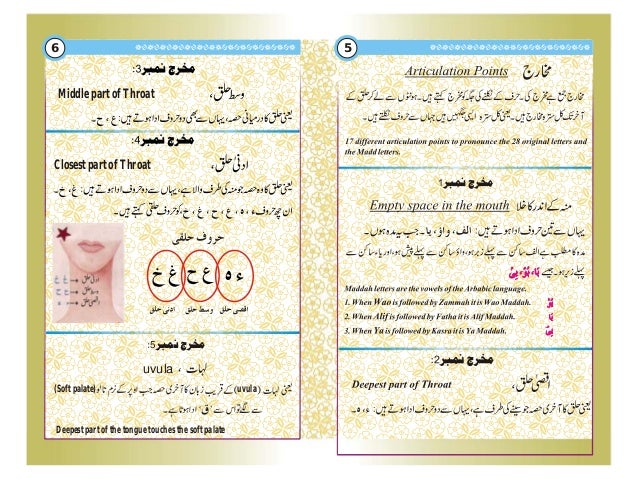 5
Articulation Points مخارج
مخارج جمع ہے مخرج کی۔ حرف کے نکلنے کی جگہ کو مخرج کہتے ہیں۔ ہونٹوں سے لے کر حلق کے
آخر تک کل سترہ مخارج ہیں۔ یعنی کل سترہ ایسی جگہیں ہیں جہاں سے حروف نکلتے ہیں۔
17 different articulation points to pronounce the 28 original letters and
the Madd letters.
مخرج نمبر1
Empty space in the mouth منہ کے اندر کا خلا
یہاں سے تین حروف ادا ہوتے ہیں: الف، واؤ، یا۔ جب یہ مدہ ہوں۔
مدہ کا مطلب ہے الف ساکن سے پہلے زبر ہو، واؤ ساکن سے پہلے پیش ہو، اور یاء ساکن سے
پہلے زیر ہو۔ جیسے
Maddah letters are the vowels of the Arbabic language.
1. When Wao is followed by Zammah it is Wao Maddah.
2. When Alif is followed by Fatha it is Alif Maddah.
3. When Ya is followed by Kasra it is Ya Maddah.
مخرج نمبر2:
Deepest part of Throat اقصیٰ حلق،
یعنی حلق کا آخری حصہ جو سینے کی طرف ہے، یہاں سے دو حروف ادا ہوتے ہیں: ء، ہ۔
6
مخرج نمبر3:
Middle part of Throat وسط حلق،
یعنی حلق کا درمیانی حصہ، یہاں سے بھی دو حروف ادا ہوتے ہیں: ع، ح۔
مخرج نمبر4:
Closest part of Throat ادنیٰ حلق،
یعنی حلق کا وہ حصہ جو منہ کی طرف والا ہے، یہاں سے دو حروف ادا ہوتے ہیں: غ، خ۔
ان چھ حروف ء، ہ، ع، ح، غ، خ، کو حروف حلقی کہتے ہیں۔
حروف حلقی
ادنیٰ حلق
وسط حلق
اقصیٰ حلق
ء ہ ع ح غ خ
اقصی حلق وسط حلق ادنی حلق
مخرج نمبر5:
لہات ، uvula
یعنی لہات (uvula) کے قریب جب زبان کا آخری حصہ اوپر کے نرم تالو (Soft palate)
سے لگے تو اس سے "ق" ادا ہوتا ہے۔
Deepest part of the tongue touches the soft palate